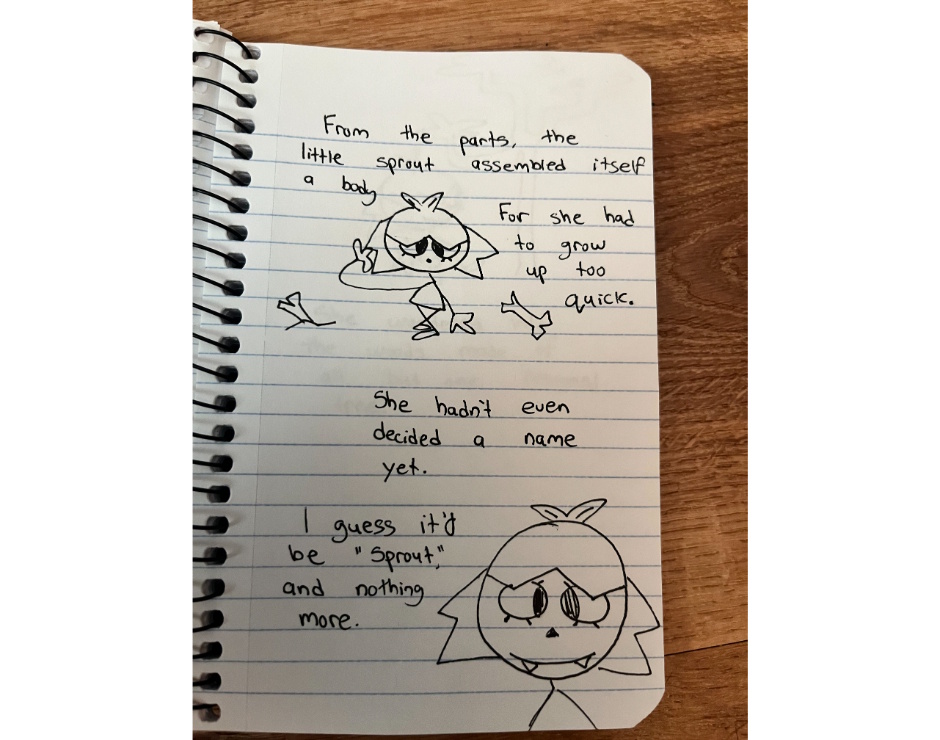 From the parts, the
little sprout assembled itself
a body
For she had
to grow
up too
quick.
She hadn't even
decided a name
yet.
I guess it'd
be "Sprout,"
and nothing
more.